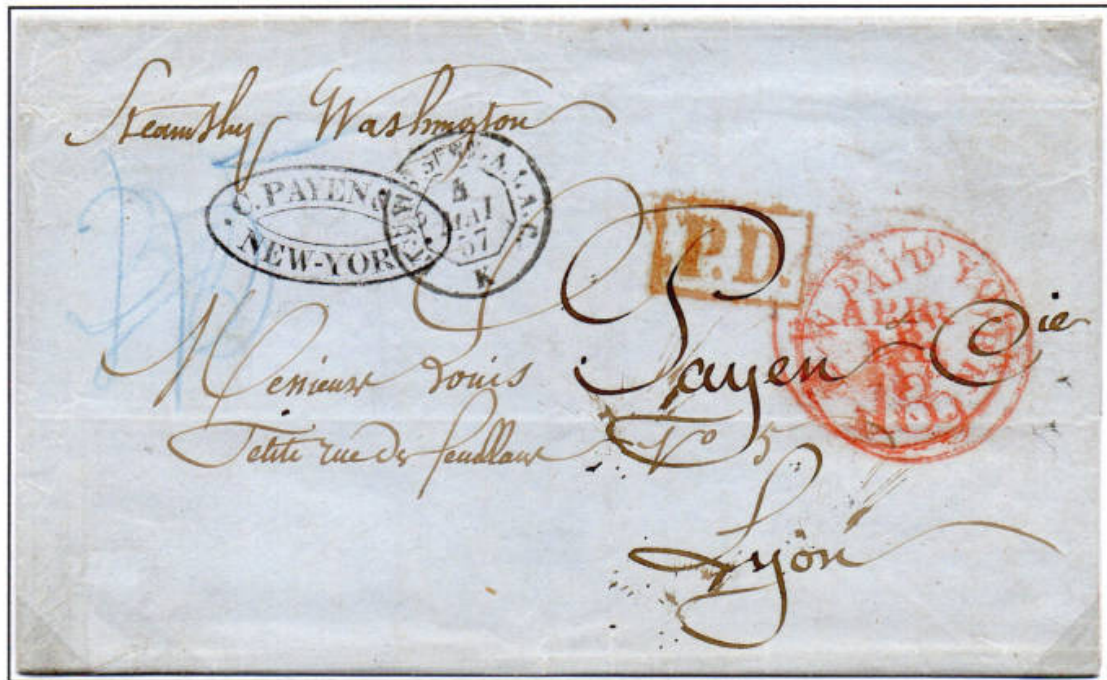 Steamship Washington
C. PAYEN &
NEW-YORK
4
MAI
57
K
P.D.
NEW PAID YORK
18
Messieurs Louis Payen & Cie
Petite rue des feuillans No 5
Lyon